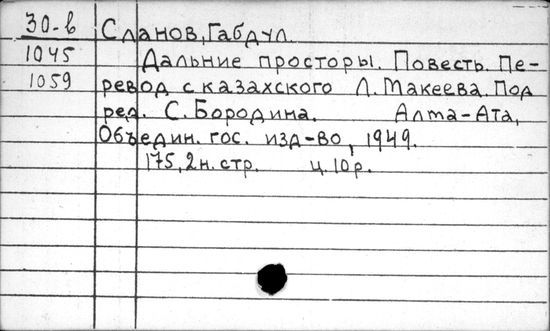 30-в Сланов, Габдул.
1045 Дальние просторы. Повесть. Пе-
1059 ревод с казахского Л. Макеева. Под
ред. С. Бородина. Алма-Ата,
Объедин. гос. изд-во, 1949.
175, 2 н. стр. ц. 10 р.